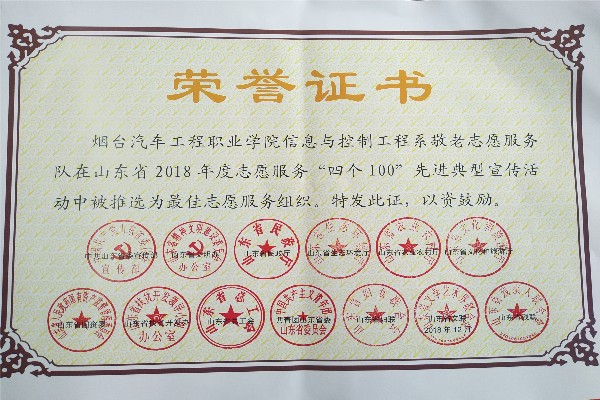 荣誉证书
烟台汽车工程职业学院信息与控制工程系敬老志愿服务
队在山东省2018年度志愿服务“四个100”先进典型宣传活
动中被推选为最佳志愿服务组织。特发此证，以资鼓励。
宣传部
办公室
山东省民政厅
山东省生态环境厅
山东省农业农村厅
办公室
山东省总工会
共青团山东省委
山东省委员会
2018年12月